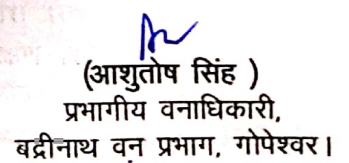 (आशुतोष सिंह )
प्रभागीय वनाधिकारी,
बद्रीनाथ वन प्रभाग, गोपेश्वर।